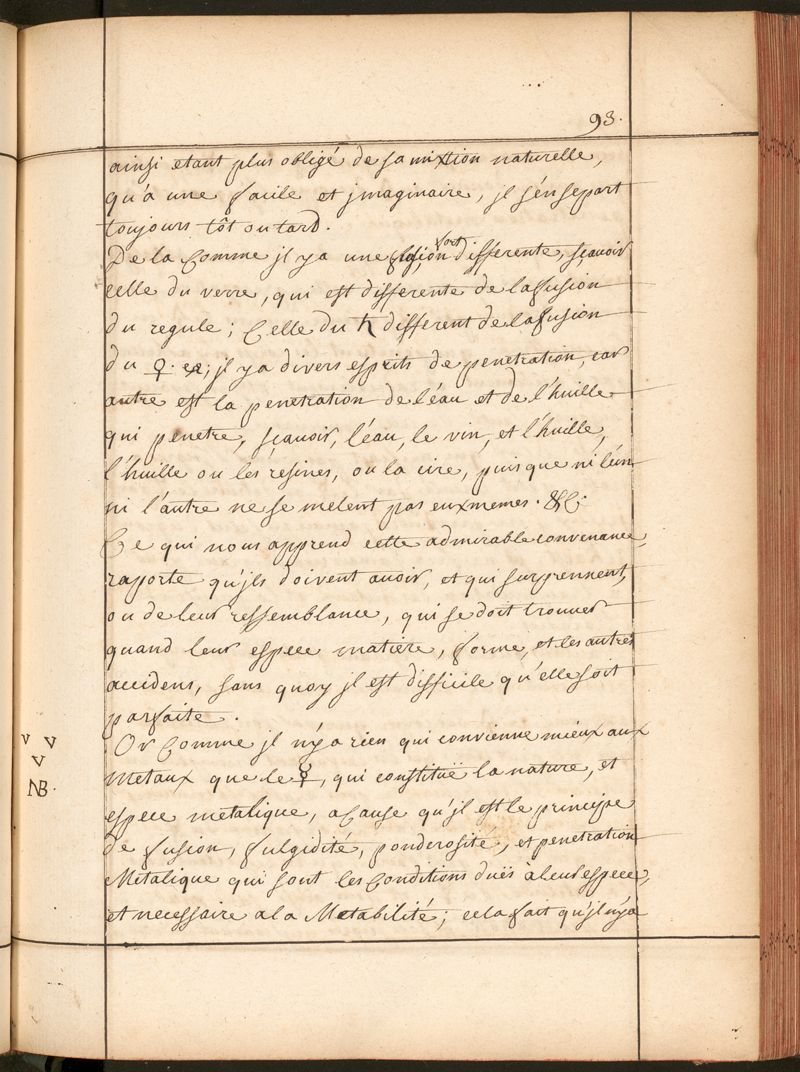 93.
ainsi etant plus obligé de sa mixtion naturelle,
qu'a une facile et jmaginaire, jl s'en separt
toujours tôt ou tard.
De la Comme jl y a une fusion fort differente, sçavoir
celle du verre, qui est differente de la fusion
du regule; Celle du ♄ different de la fusion
du ♀. &; jl y a divers esprits de penetration, car
autre est la penetration de l'éau et de l'huille
qui penetre, sçavoir, l'éau, le vin, et l'huille,
l'huille ou les résines, ou la cire, puis que ni l'ún
ni l'autre ne se melent pas eux memes. &C.
Ce qui nous apprend cette admirable convenance,
raporte qu'jls doivent avoir, et qui surprennent,
ou de leur ressemblance, qui se doit trouver
quand leur espece matiere, forme, et les autres
accidens, sans quoy jl est difficile qu'elle soit
parfaite.
Or Comme jl n'y a rien qui convienne mieux aux
V V
V
NB.
Metaux que le ☿, qui constituë la nature, et
espece metalique, a Cause qu'jl est le principe
de fusion, fulgidité, ponderosité, et penetration
Metalique qui sont les Conditions duës à leur espece,
et necessaire a la Metabilité; cela fait qu'jl n'y a